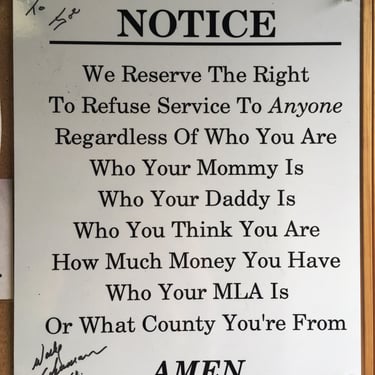 To Joe
NOTICE
We Reserve The Right
To Refuse Service To Anyone
Regardless Of Who You Are
Who Your Mommy Is
Who Your Daddy Is
Who You Think You Are
How Much Money You Have
Who Your MLA Is
Or What County You're From
AMEN